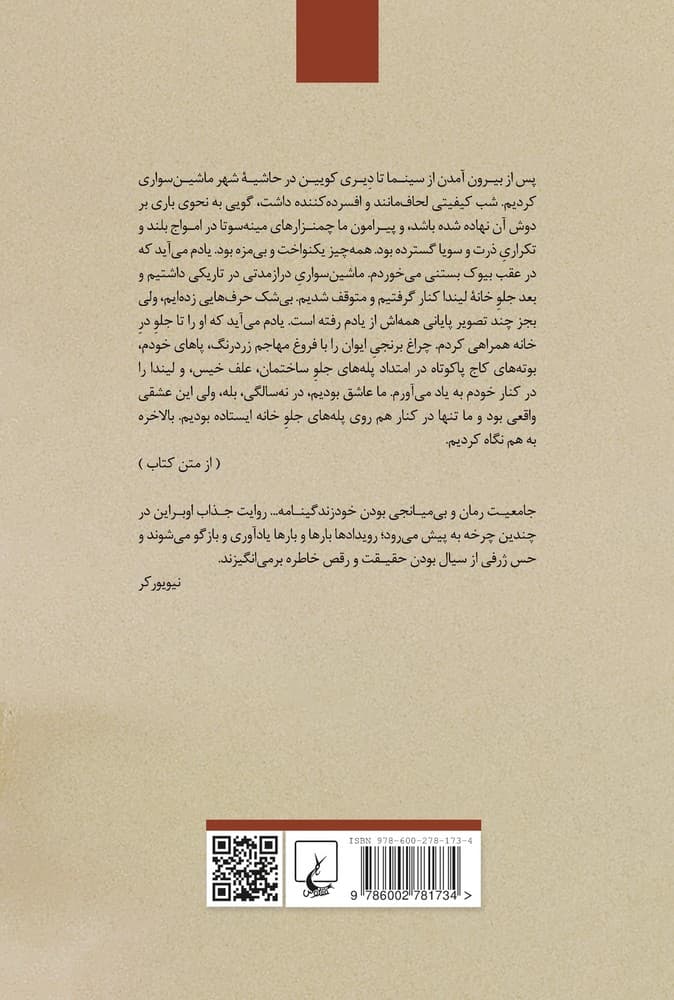 پس از بیرون آمدن از سینما تا دِیری کویین در حاشیهٔ شهر ماشین‌سواری
کردیم. شب کیفیتی لحاف‌مانند و افسرده‌کننده داشت، گویی به نحوی باری بر
دوش آن نهاده شده باشد، و پیرامون ما چمنزارهای مینه‌سوتا در امواج بلند و
تکراریِ ذرت و سویا گسترده بود. همه‌چیز یکنواخت و بی‌مزه بود. یادم می‌آید که
در عقب بیوک بستنی می‌خوردم. ماشین‌سواریِ درازمدتی در تاریکی داشتیم و
بعد جلوِ خانهٔ لیندا کنار گرفتیم و متوقف شدیم. بی‌شک حرف‌هایی زده‌ایم، ولی
بجز چند تصویر پایانی همه‌اش از یادم رفته است. یادم می‌آید که او را تا جلوِ درِ
خانه همراهی کردم. چراغ برنجیِ ایوان را با فروغ مهاجم زردرنگ، پاهای خودم،
بوته‌های کاج پاکوتاه در امتداد پله‌های جلوِ ساختمان، علف خیس، و لیندا را
در کنار خودم به یاد می‌آورم. ما عاشق بودیم، در نه‌سالگی، بله، ولی این عشقی
واقعی بود و ما تنها در کنار هم روی پله‌های جلوِ خانه ایستاده بودیم. بالاخره
به هم نگاه کردیم.
( از متن کتاب )
جامعیت رمان و بی‌میانجی بودن خودزندگینامه... روایت جذاب اوبراین در
چندین چرخه به پیش می‌رود؛ رویدادها بارها و بارها یادآوری و بازگو می‌شوند و
حس ژرفی از سیال بودن حقیقت و رقص خاطره برمی‌انگیزند.
نیویورکر
ISBN 978-600-278-173-4
9 786002 781734 >
ققنوس